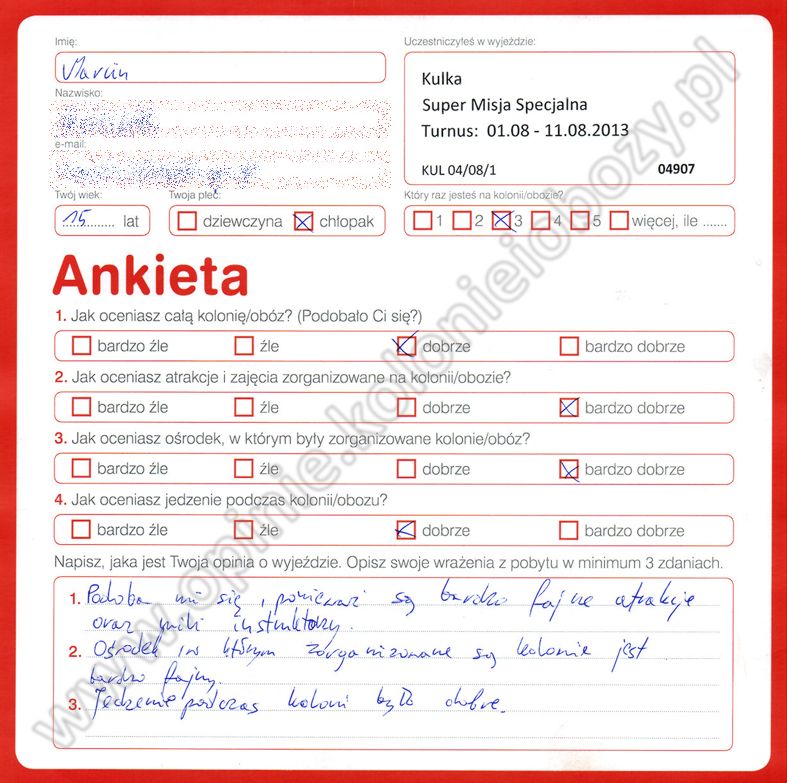 Imię:
Marcin
Uczestniczyłeś w wyjeździe:
Kulka
Super Misja Specjalna
Turnus: 01.08 - 11.08.2013
KUL 04/08/1 04907
Nazwisko:
e-mail:
Twój wiek:
15 lat
Twoja płeć:
dziewczyna chłopak
Który raz jesteś na kolonii/obozie?
1 2 3 4 5 więcej, ile .......
Ankieta
1. Jak oceniasz całą kolonię/obóz? (Podobało Ci się?)
bardzo źle źle dobrze bardzo dobrze
2. Jak oceniasz atrakcje i zajęcia zorganizowane na kolonii/obozie?
bardzo źle źle dobrze bardzo dobrze
3. Jak oceniasz ośrodek, w którym były zorganizowane kolonie/obóz?
bardzo źle źle dobrze bardzo dobrze
4. Jak oceniasz jedzenie podczas kolonii/obozu?
bardzo źle źle dobrze bardzo dobrze
Napisz, jaka jest Twoja opinia o wyjeździe. Opisz swoje wrażenia z pobytu w minimum 3 zdaniach.
1. Podoba mi się, ponieważ są bardzo fajne atrakcje
oraz mili instruktorzy.
2. Ośrodek w którym zorganizowane są kolonie jest
bardzo fajny.
3. Jedzenie podczas koloni było dobre.
www.opinie.kolonieiobozy.pl